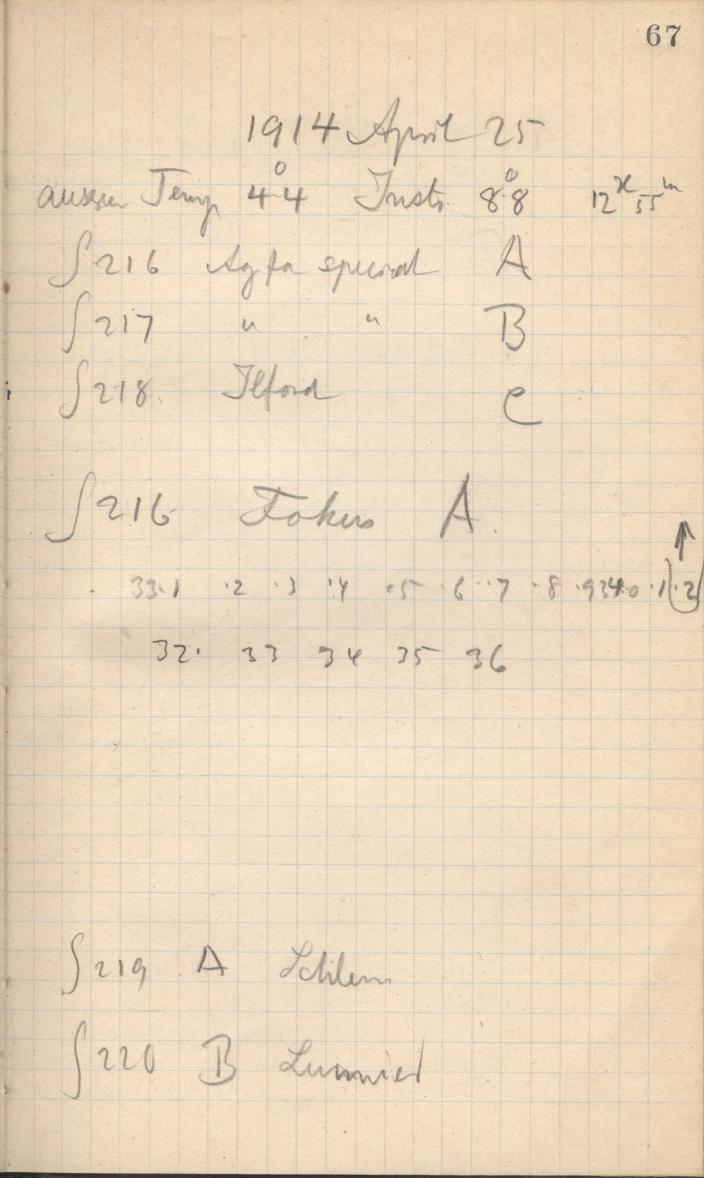 67
1914 April 25
aussen Temp 4°4 Instr. 8°8 12h 55m
∫216 Agfa special A
∫217 " " B
∫218. Ilford C
∫216 Fokus A
33.1 .2 .3 .4 .5 .6 .7 .8 .9 34.0 .1 (.2)
32. 33 34 35 36
∫219 A
∫220 B